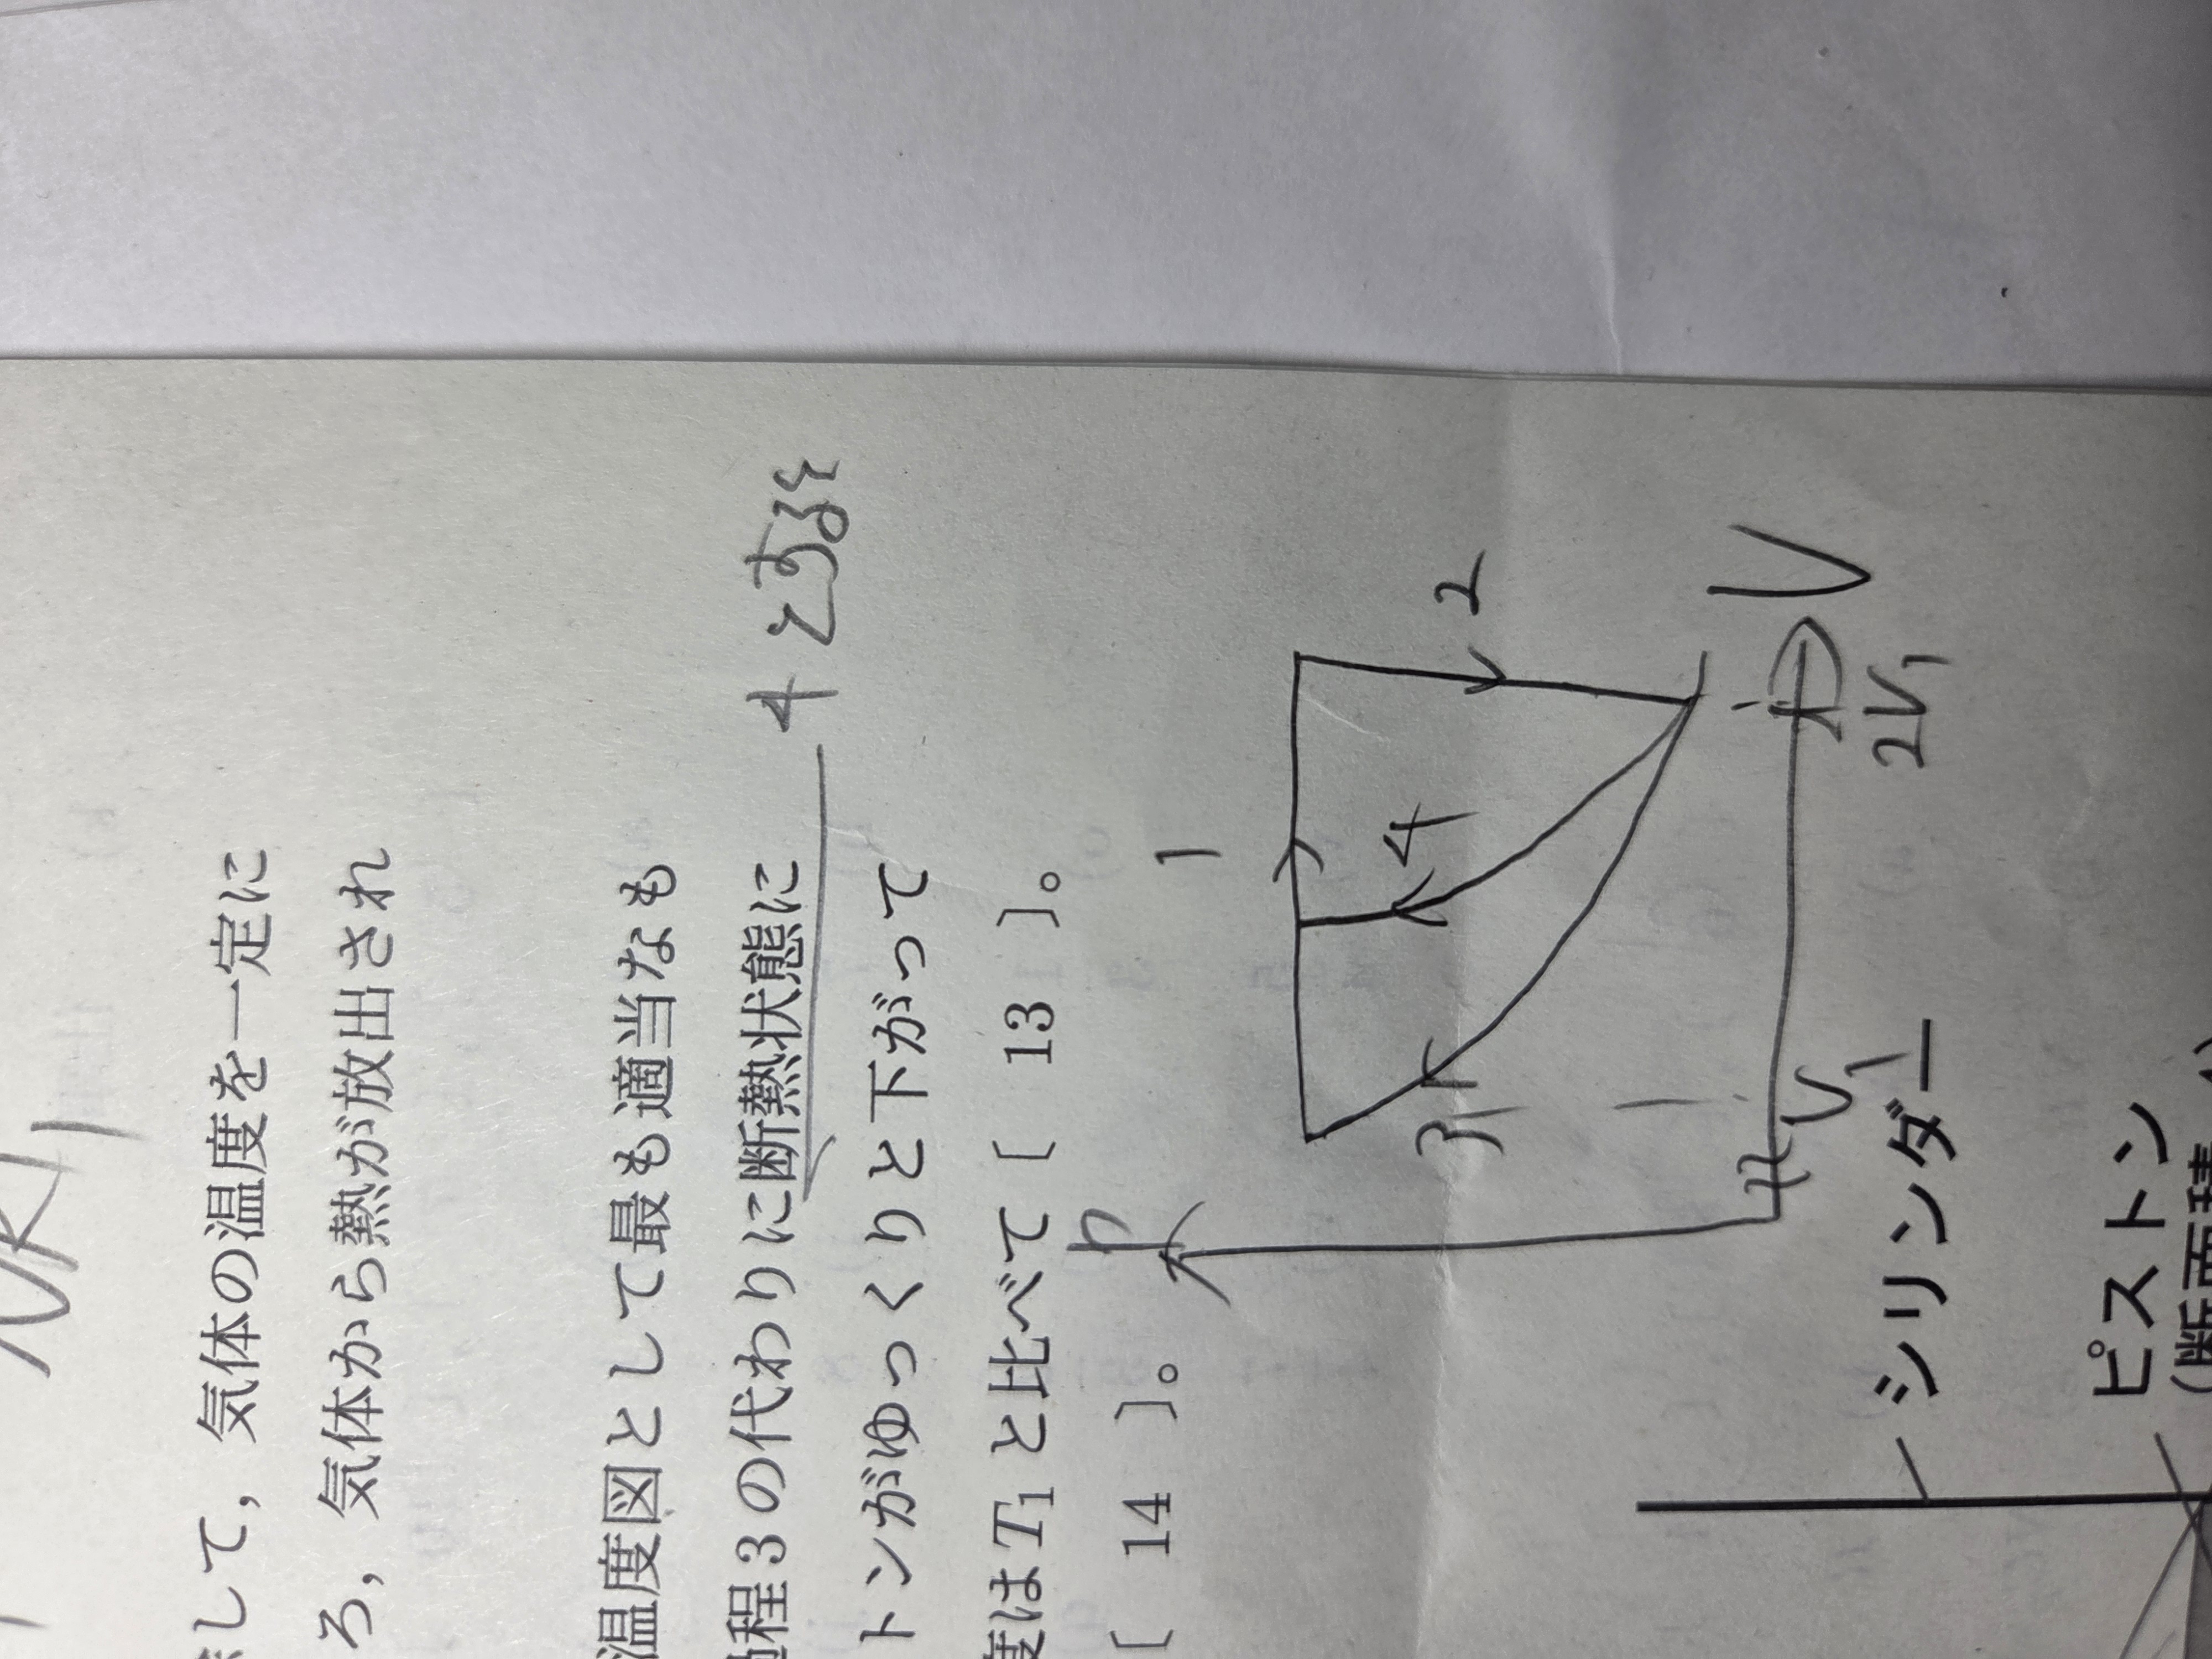 NRT1
して，気体の温度を一定に
ろ，気体から熱が放出され
温度図として最も適当なも
過程3の代わりに断熱状態に
4とする
トンがゆっくりと下がって
度はT1と比べて〔 13 〕。
〔 14 〕。
p
1
2
3
4
V1
2V1
V
シリンダー
ピストン
(断面積